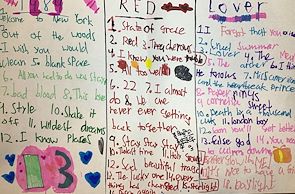 1989
Welcome to New York
Out of the woods
I wish you would
Clean So blank space
6. All you had to do was Stay
7. bad blood 8. This love
9. Style 10. Shake it
off 11. wildest dreams
12. I know places
13
RED
1. State of grace
2. Red 3. Treacherous
4. I knew you were trouble
5. All too well
6. 22 7. I almost
do 8. We are
never ever getting
back together
Stay Stay Stay
10. The last time 11. Holy ground
12. Sad beautiful tragic
13. The lucky one 14. every
thing has changed 15. Starlight
Lover
1. I Forgot that you
2. Cruel Summer
3. Lover 4. The Man
5. The archer 6. I think
He knows 7. Miss americana
and the heartbreak prince
8. Paper rings
9. cornelia street
10. Death by a thousand
cuts 11. London boy
12. Soon you'll get better
13. False god 14. You need
to calm down
to have a friend
18. Daylight